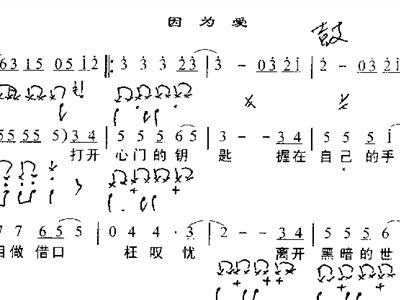 因为爱 鼓
63 15 05 12 |: 3 3 3 23 | 2 - 03 21 | 2 - 03 21
55 55 55) 34 | 5 5 5 65 | 3 - - 34 | 5 5 5 1
打开 心门的钥 匙 握在 自己的手
7 7 65 5 | 0 4 4· 3 | 2 - - 34 | 5 5 5 5
做 借口 枉叹忧 离开 黑暗的世